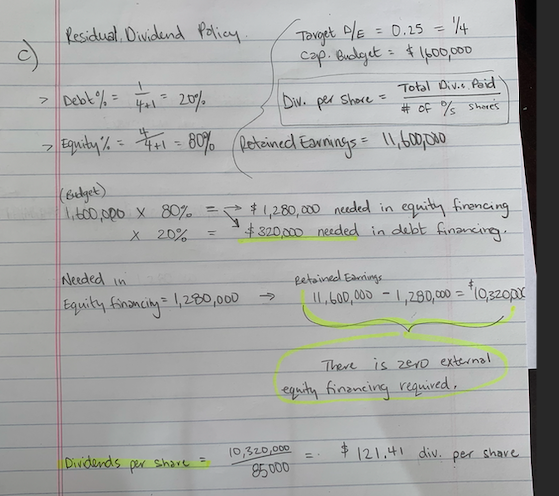 Residual Dividend Policy
c)
Target D/E = 0.25 = 1/4
Cap. Budget = $ 1,600,000
> Debt % = 1/4+1 = 20%
Div. per share = Total Div. Paid / # OF O/S shares
> Equity % = 4/4+1 = 80%
Retained Earnings = 11,600,000
(Budget)
1,600,000 x 80% = → $ 1,280,000 needed in equity financing
x 20% = $ 320,000 needed in debt financing.
Needed in
Equity financing = 1,280,000 →
Retained Earnings
11,600,000 - 1,280,000 = $10,320,000
There is zero external
equity financing required.
Dividends per share = 10,320,000 / 85000 = $ 121.41 div. per share